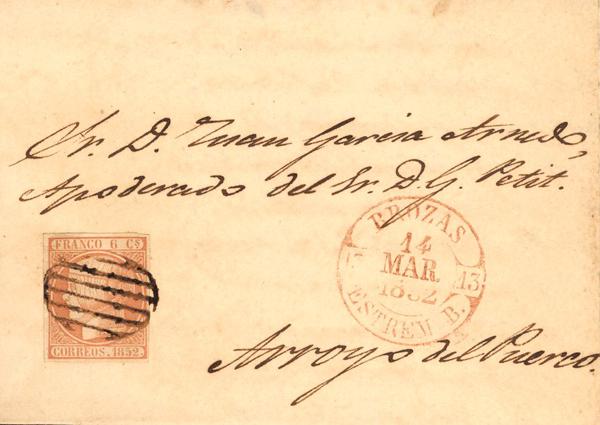 Sr. D. Juan Garcia Arnedo,
Apoderado del Sr. D. G. Petit.
FRANCO 6 Cs
CORREOS. 1852.
BROZAS
14
MAR.
1852
13
ESTREM B.
Arroyo del Puerco.